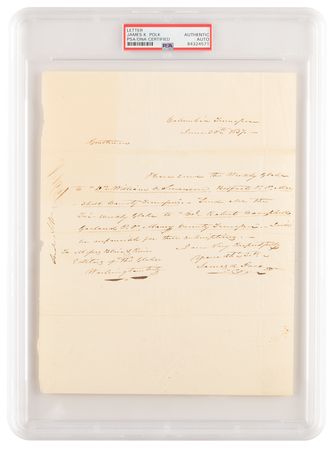 LETTER
JAMES K. POLK
PSA/DNA CERTIFIED
AUTHENTIC
AUTO
84324571
PSA
Columbia Tennessee
June 20th 1837
Gentlemen
Please send the Weekly Globe
to "Dr. William
County Tennessee". Send also the
Tri-Weekly Globe to
P.O. Maury County Tennessee". I will
be responsible for their subscriptions.
I am Very Respectfully
To Messrs Blair & Rives
Your Obt. Svt.
Editors of the Globe
James K. Polk
Washington City